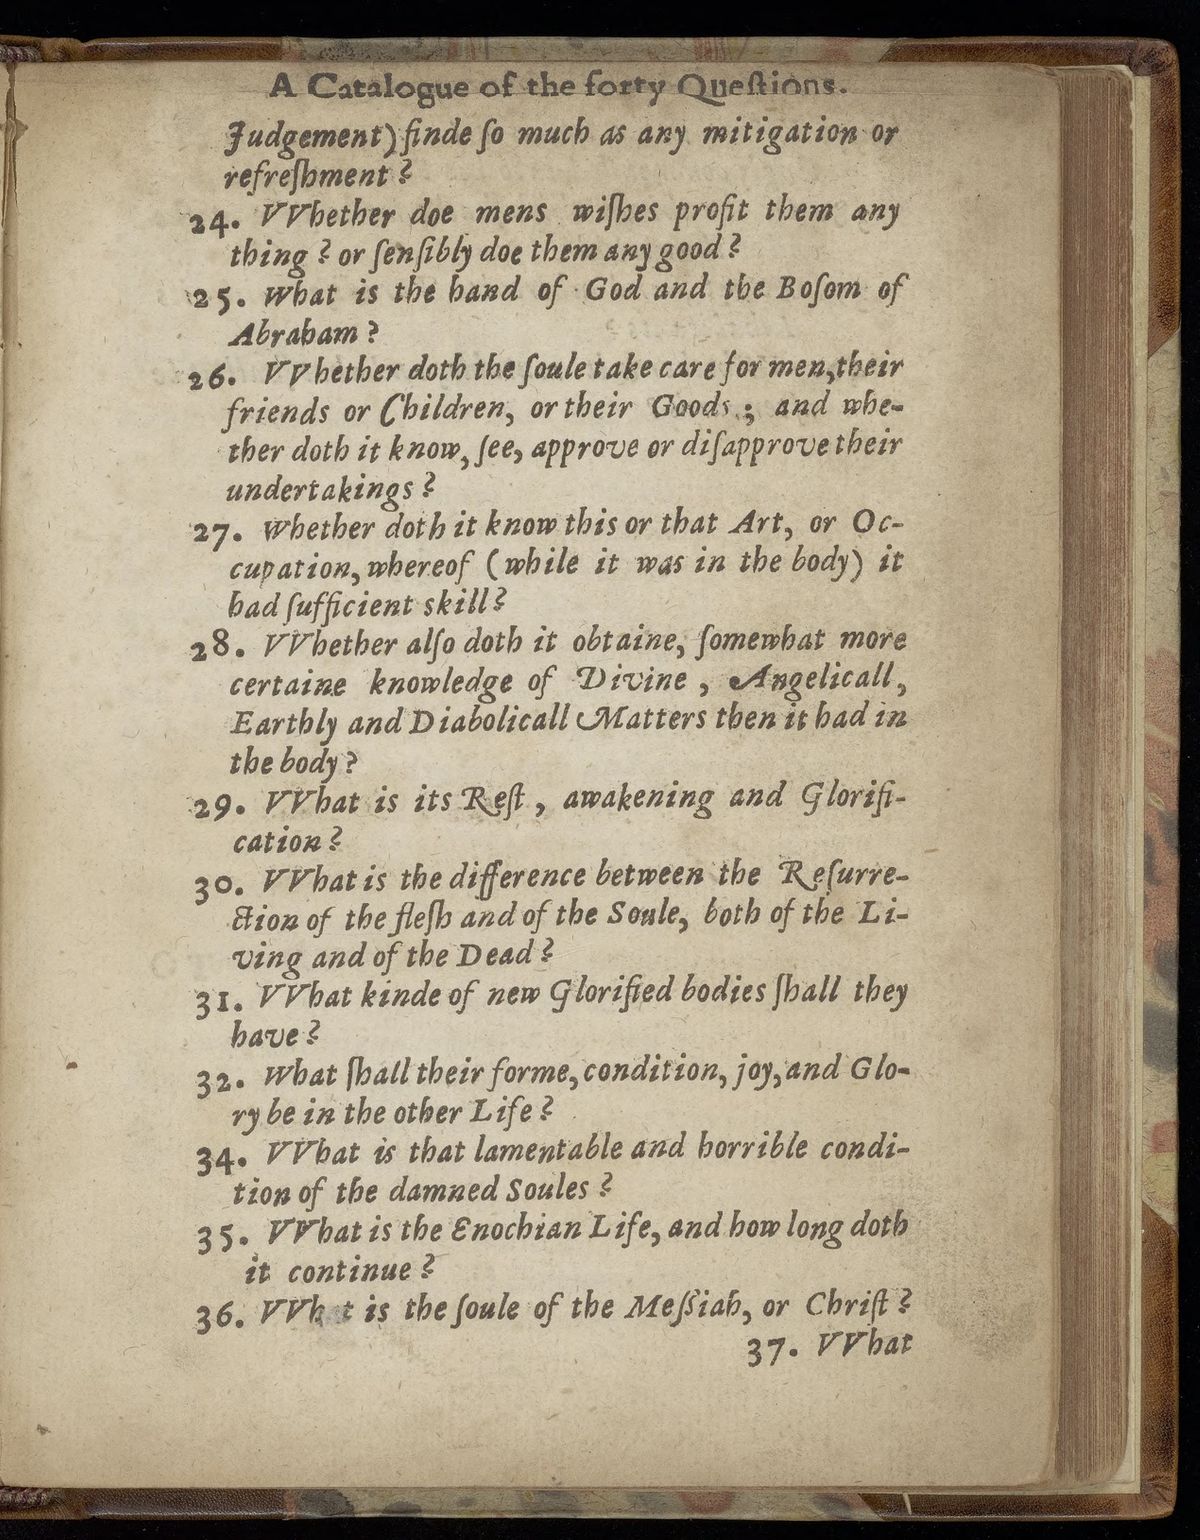 A Catalogue of the forty Queſtions.
Judgement) finde ſo much as any mitigation or
refreſhment?
24. VVhether doe mens wiſhes profit them any
thing? or ſenſibly doe them any good?
25. What is the hand of God and the Boſom of
Abraham?
26. VVhether doth the ſoule take care for men, their
friends or Children, or their Goods; and whe-
ther doth it know, ſee, approve or diſapprove their
undertakings?
27. Whether doth it know this or that Art, or Oc-
cupation, whereof (while it was in the body) it
had ſufficient skill?
28. VVhether alſo doth it obtaine, ſomewhat more
certaine knowledge of Divine, Angelicall,
Earthly and Diabolicall Matters then it had in
the body?
29. VVhat is its Reſt, awakening and Glorifi-
cation?
30. VVhat is the difference between the Reſurre-
ction of the fleſh and of the Soule, both of the Li-
ving and of the Dead?
31. VVhat kinde of new Glorified bodies ſhall they
have?
32. What ſhall their forme, condition, joy, and Glo-
ry be in the other Life?
34. VVhat is that lamentable and horrible condi-
tion of the damned Soules?
35. VVhat is the Enochian Life, and how long doth
it continue?
36. VVhat is the ſoule of the Meſsiah, or Chriſt?
37. VVhat